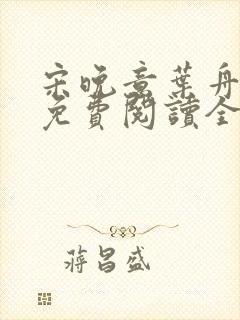 宋晚意葉舟
免費閱讀全
蔣昌盛